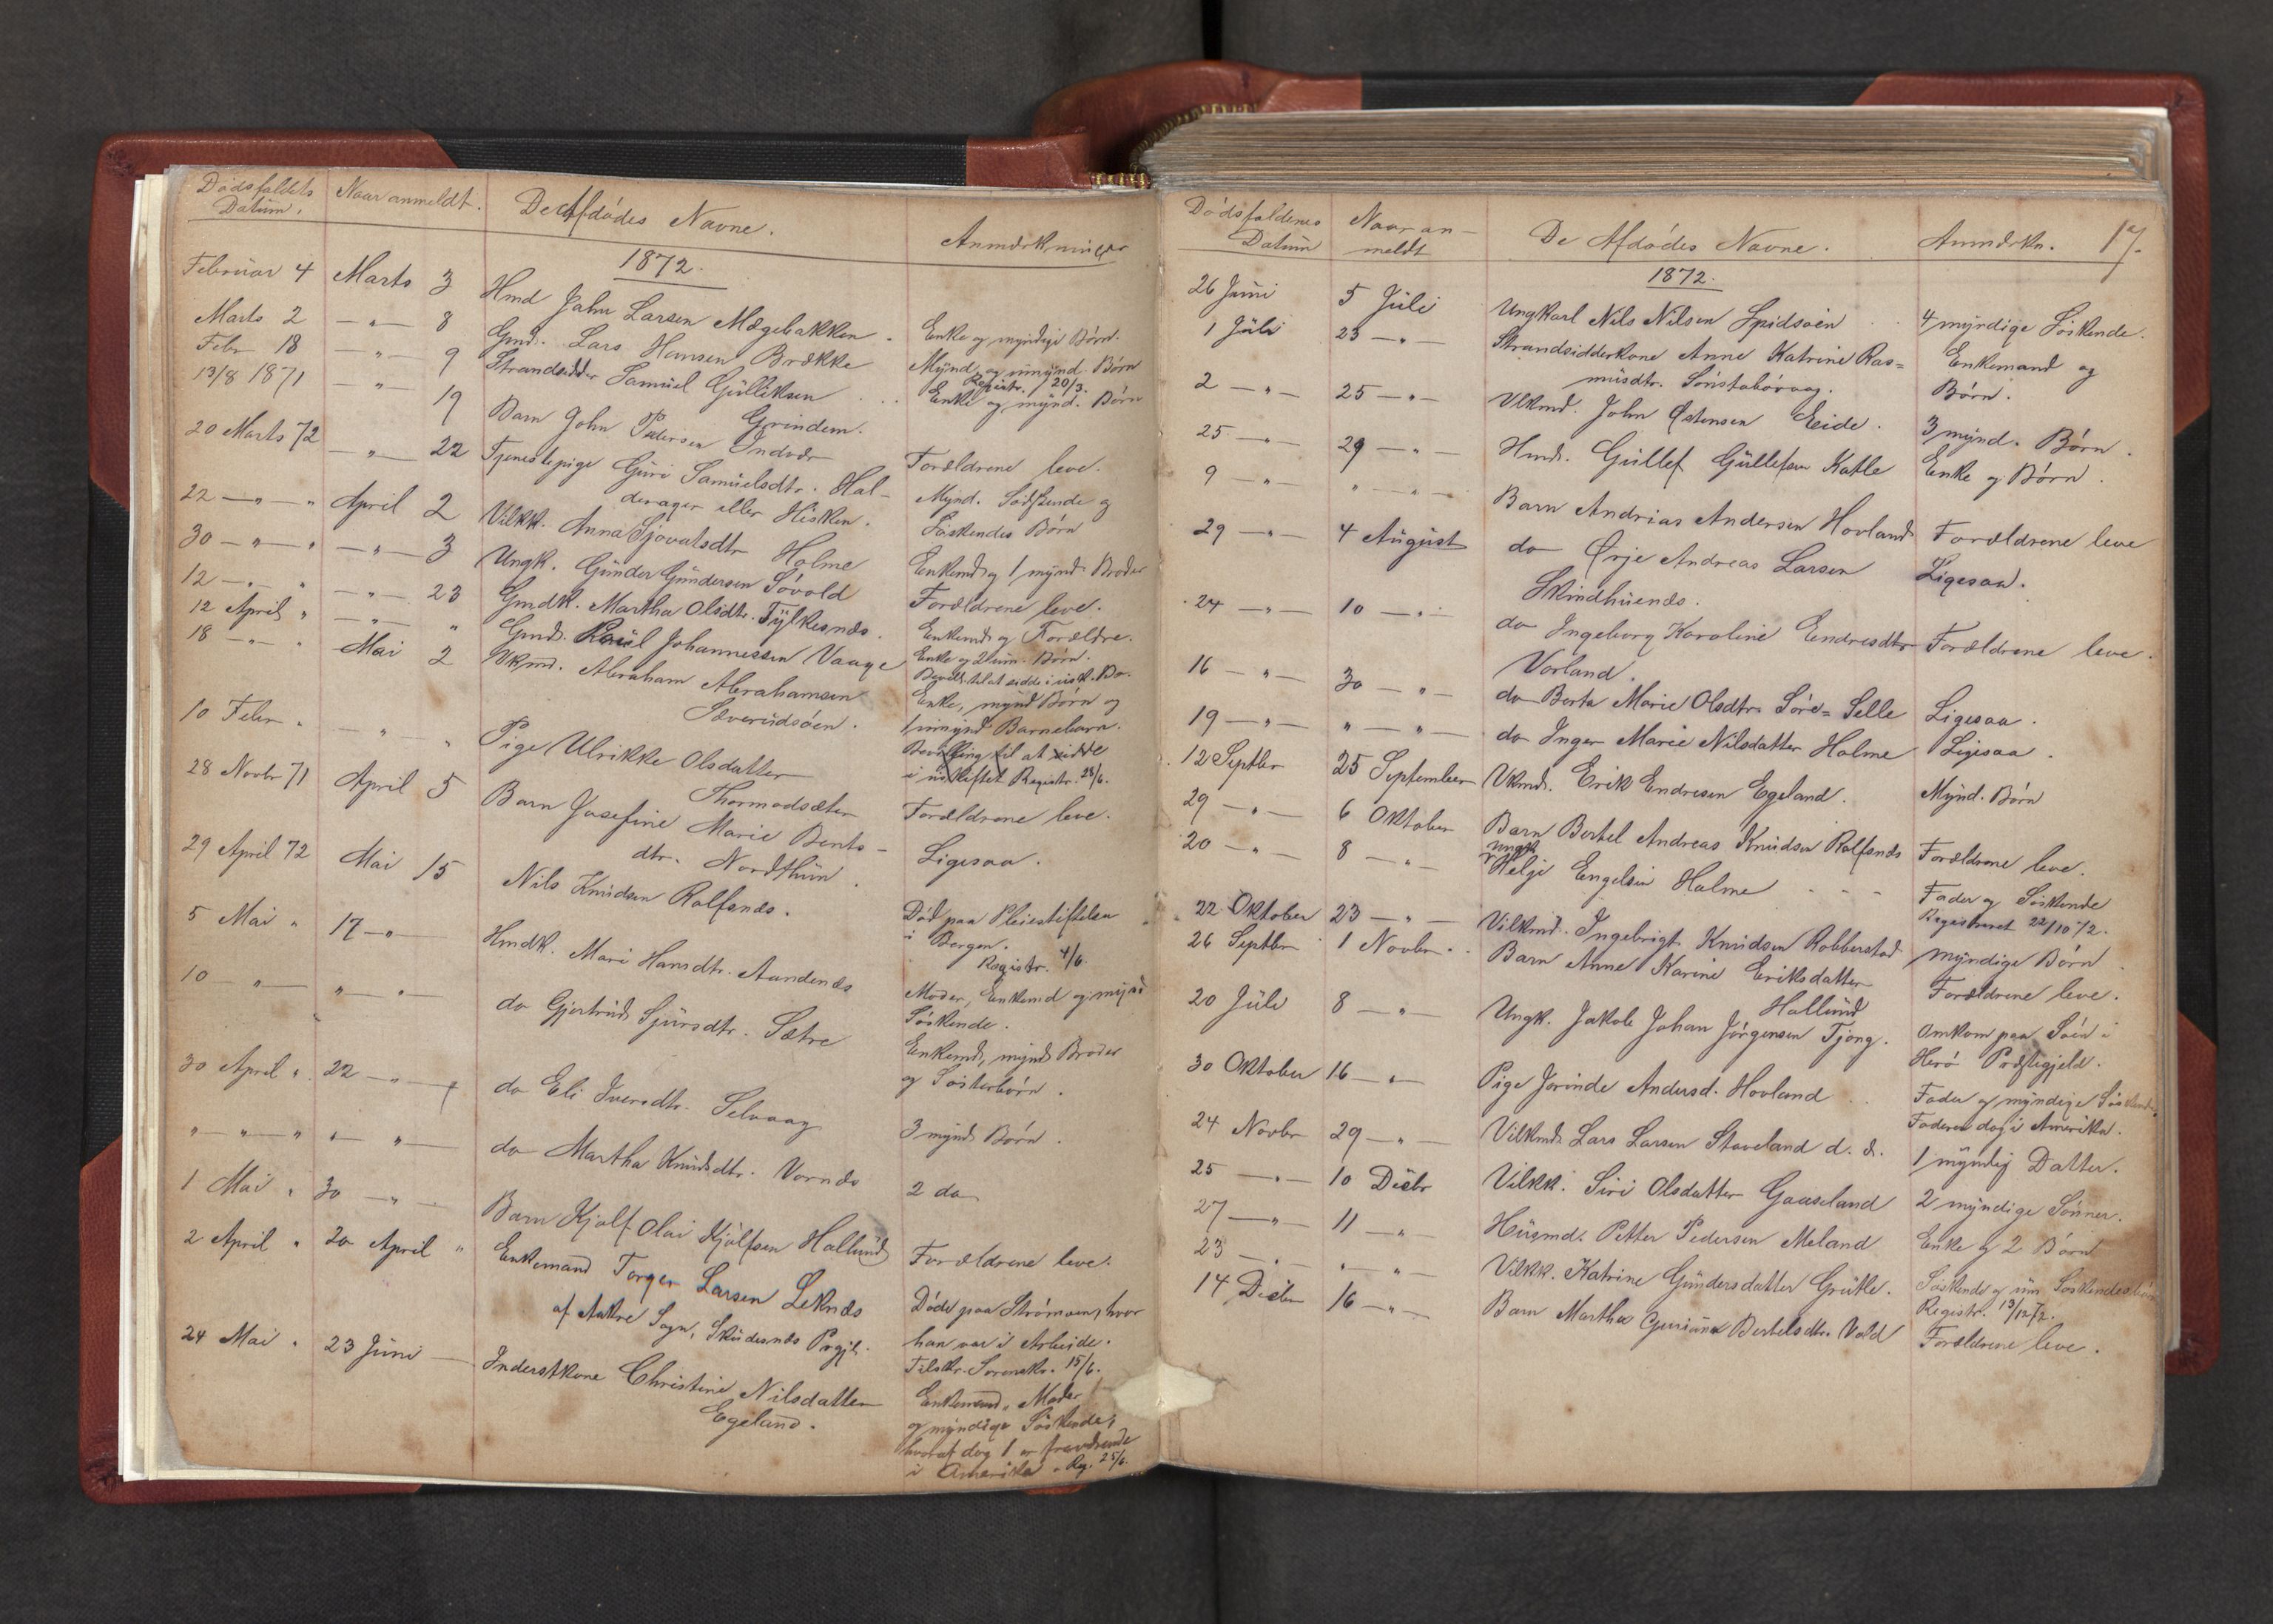 Dødsfaldets Datum.  Naar anmeldt.  De Afdødes Navne.  Anmærkninger
1872.
Februar 4  Marts 3  Hmd Jahn Larsen Mægebakken.  Enke og myndige Børn.
Marts 2  — " — 8  Gmd. Lars Hansen Brække  Mynd. og umynd. Børn
Registr. 20/3.
Febr 18  — " — 9  Strandsidder Samuel Gülliksen . . .  Enke og mynd. Børn
Grindem.
13/8 1871  19  Barn John Pedersen Indvær  Forældrene leve.
20 Marts 72  — " — 22  Tjenestepige Guri Samuelsdtr. Hal-  Mynd. Sødskende og
derager eller Hisken.  Søskendes Børn
22 — " — "  April 2  Vilkk. Anna Sjovatsdtr Holme  Enkemd og 1 mynd. Broder
30 — " — "  — " — 3  Ungk. Gunder Gundersen Søvold  Forældrene leve.
12 — " "  — " — 23  Gmdk. Martha Olsdtr. Fylkesnæs.  Enkemd. og Forældre.
12 April "  — " — "  Gmd. Paül Johannessen Vaage  Enke og 2 um. Børn.
Bevilt. til at sidde i usk. Bo.
18 — " — "  Mai 2  Vkmd. Abraham Abrahamsen  Enke, mynd Børn og
Sæverudsøen.  1 umynd Barnebarn.
Bevilling til at sidde
i uskiftet Registr. 28/6.
10 Febr. "  — " — "  Pige Ulrikke Olsdatter
Thormodsæter  Forældrene leve.
28 Novbr 71  April 5  Barn Josefine Marie Bents-
dtr. Nordthun.  Ligesaa.
29 April 72  Mai 15  Nils Knudsen Rolfsnæs.  Død paa Pleiestiftelsen
i Bergen.
Registr. 4/6
5 Mai "  17 — " —  Hmdk. Mari Hansdtr. Aandenæs  Moder, Enkemd og mynd
Søskende.
10 — " —  " — "  do Gjertrud Sjursdtr. Sætre  Enkemd, mynd Broder
og Søsterbørn.
30 April "  22 — " —  do Eli Iversdtr. Selvaag  3 mynd Børn.
" — " — "  " — " —  do Martha Knudsdtr. Vornæs  2 do
1 Mai "  30 — " —  Barn Kjølf Olai Kjølfsen Hallund  Forældrene leve.
2 April "  20 April "  Enkemand Torger Larsen Leknæs  Døde paa Strømøen, hvor
af Aakre Sogn, Skudesnæs Prgjl.  han var i Arbeide.
Tilskr. Sorenskr. 15/6.
24 Mai "  23 Juni —  Inderstkone Christine Nilsdatter  Enkemand, Moder
Egeland.  og myndige Søskende,
hvoraf dog 1 er fraværende
i Amerika. Reg. 25/6.
Dødsfaldenes Datum  Naar an-meldt  De Afdødes Navne.  Anmærkn.  17.
1872.
26 Juni  5 Juli  Ungkarl Nils Nilsen Spidsøen . .  4 myndige Søskende.
1 Juli  23 — " —  Strandsidderkone Anne Katrine Ras=  Enkemand og
musdtr. Sønstabøvaag.  Børn.
2 — " —  25 — " —  Vlkmd. John Østensen Eide.  3 mynd. Børn.
25 — " —  29 — " —  Hmd. Gullef Gullefsen Katle  Enke og Børn.
9 — " —  " — " —  Barn Andrias Andersen Hovland  Forældrene leve
29 — " —  4 August  do Ørje Andreas Larsen  Ligesaa.
Skindhuenæs.
24 — " —  10 — " —  do Ingeborg Karoline Endresdtr  Forældrene leve.
Vorland.
16 — " —  30 — " —  do Berta Marie Olsdtr. Søre=Selle  Ligesaa.
19 — " —  " — " —  do Inger Marie Nilsdatter Holme  Ligesaa.
12 Septbr  25 September  Vkmd. Erik Endresen Egeland.  Mynd. Børn
29 — " —  6 Oktober  Barn Bertel Andreas Knudsen Rolfsnæs  Forældrene leve.
20 — " —  8 — "  Ungk Helje Engelsen Holme - - -  Fader og Søskende
Registreret 22/10 72.
22 Oktober  23 — " —  Vilkmd. Ingebrigt Knudsen Robberstad  myndige Børn.
26 Septbr  1 Novbr. .  Barn Anne Karine Eriksdatter
Hallund  Forældrene leve.
20 Juli  8 — " —  Ungk. Jakob Johan Jørgensen Tjong.  Omkom paa Søen i
Herø Præstegjeld.
30 Oktober  16 — " —  Pige Jorinde Andersd. Hovland . .  Fader og myndige Søskende,
Faderen dog i Amerika.
24 Novbr  29 — " —  Vilkmd Lars Larsen Staveland d. æ.  1 myndig Datter.
25 — " —  10 Decbr  Vilkk. Siri Olsdatter Gaaseland  2 myndige Sønner.
27 — " —  11 — " —  Husmd. Petter Pedersen Meland  Enke og 2 Børn
23 — " —  " — " —  Vilkk. Katrine Gundersdatter Grutle.  Søskende og um. Søskendesbørn
Registr. 13/12 72.
14 Decbr  16 — " —  Barn Martha Guriane Bertelsdtr. Vold  Forældrene leve.